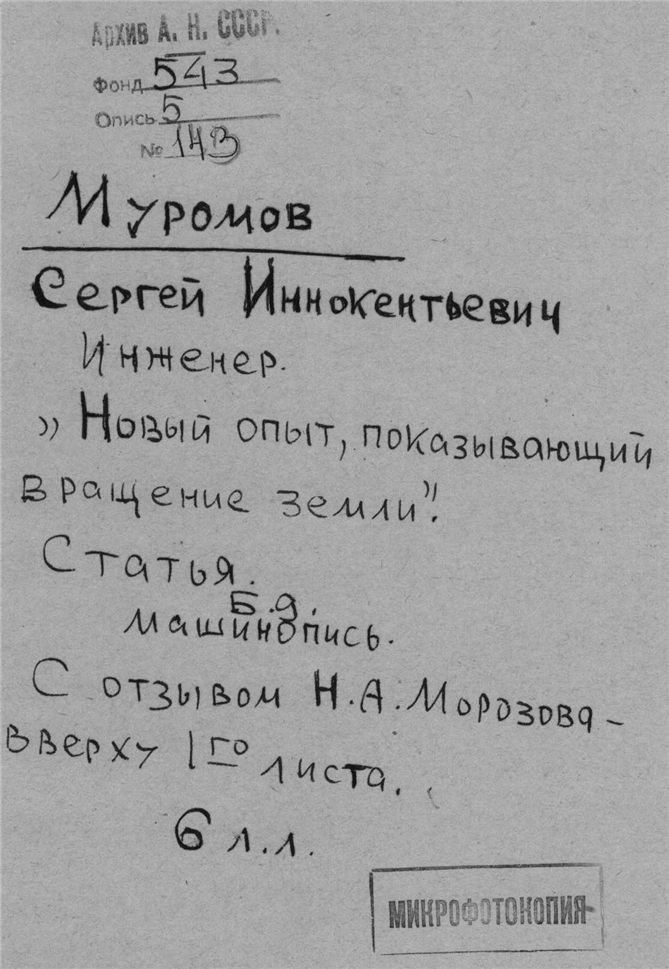 Архив А. Н. СССР.
Фонд 543
Опись 5
№ 143
Муромов
Сергей Иннокентьевич
Инженер.
„Новый опыт, показывающий
вращение земли".
Статья.
Б.д.
машинопись.
С отзывом Н.А. Морозова –
вверху 1го листа.
6 л.л.
МИКРОФОТОКОПИЯ